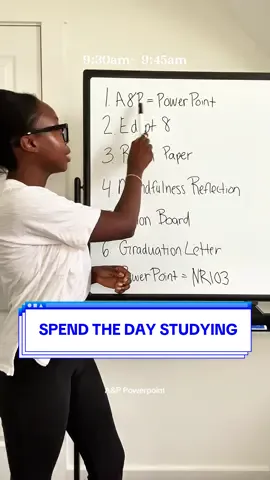 9:30am - 9:45am
1. A&P = PowerPoint
2. Edapt 8
3. Paper
4. Mindfulness Reflection
Board
6. Graduation Letter
PowerPoint = NR103
SPEND THE DAY STUDYING
A&P Powerpoint